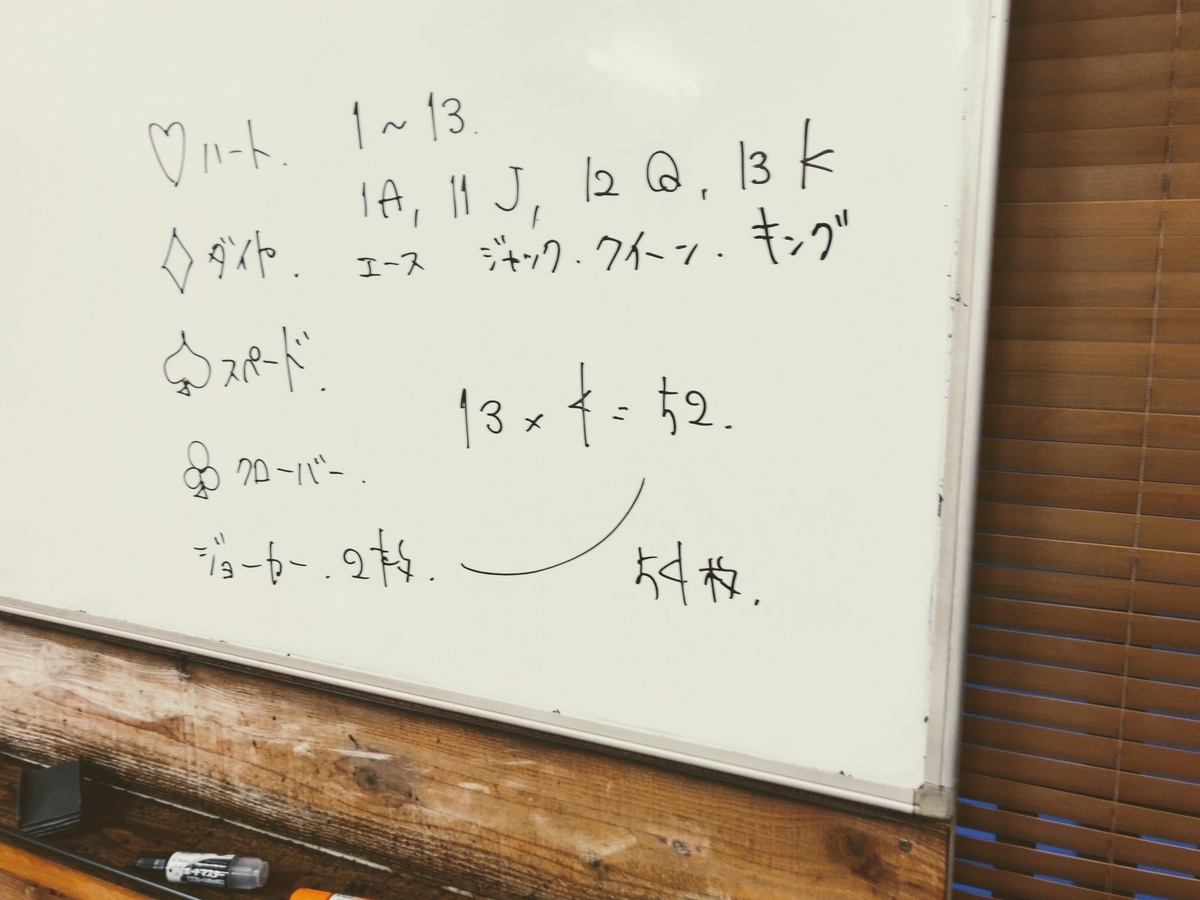 ♡ハート. 1～13.
1A, 11 J, 12 Q, 13 K
♢ダイヤ. エース ジャック. クイーン. キング
♤スペード.
13 × 4 = 52.
♧クローバー.
ジョーカー. 2枚. 54枚.